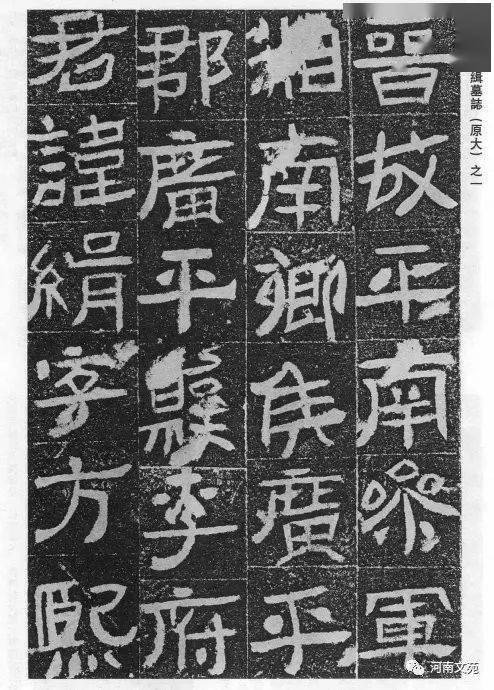 晉故平南參軍
湘南鄉侯廣平
郡廣平縣李府
君諱緝字方熙
緝墓誌（原大）之一
河南文苑